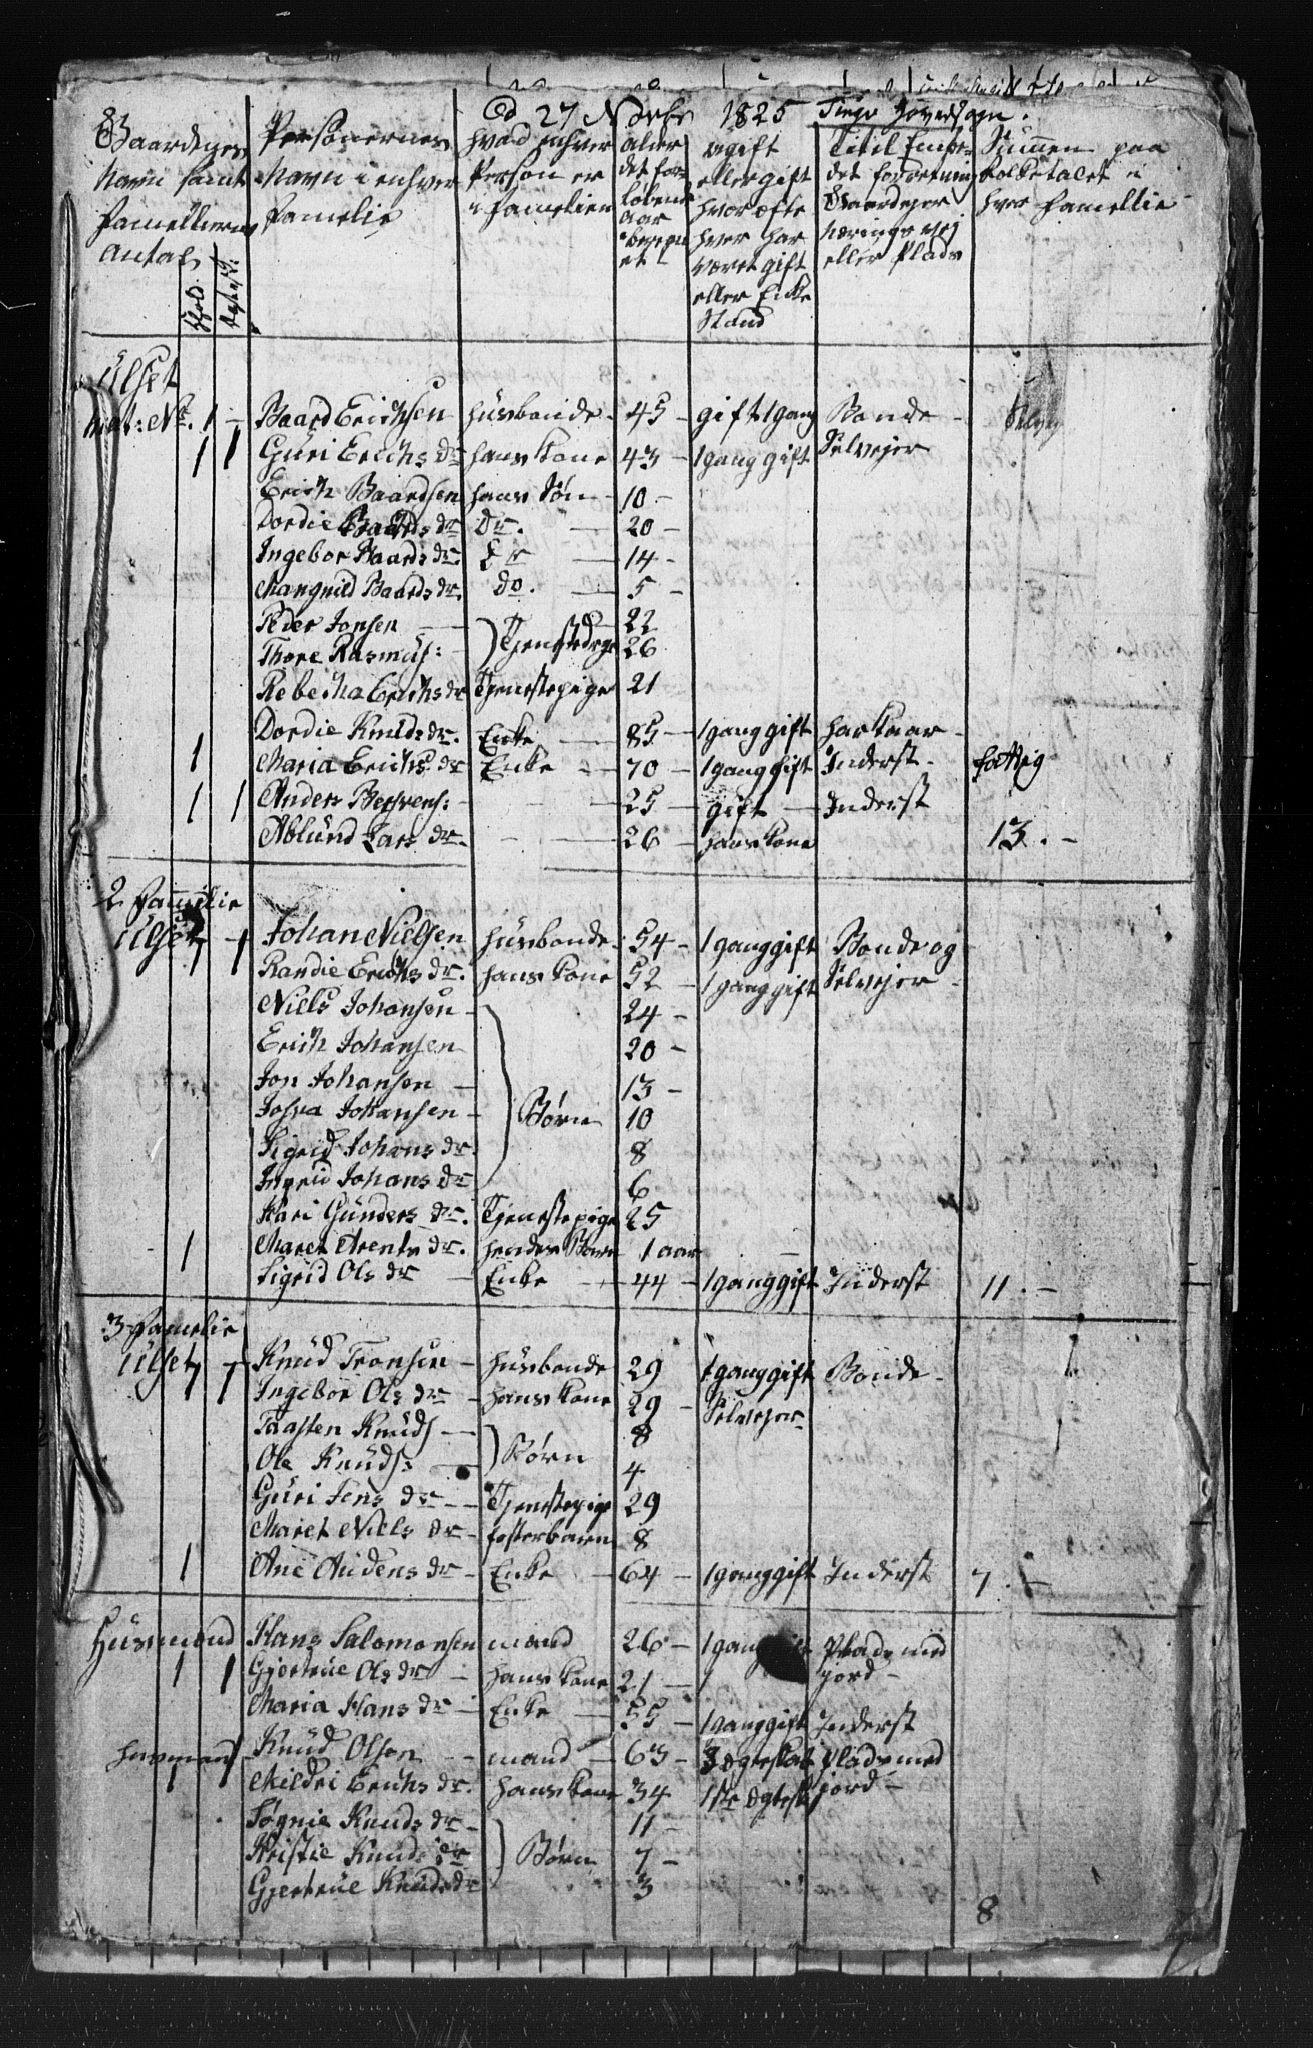 Ed 27 November 1825 Tingv Hovedsogn.
Gaardenes Navn samt Famellernes Antal
Personernes Navn i enhver Familie
hvad enhver Person er i Familien
alder det forløbende aar beregnet
ugift eller gift hvor ofte hver har været gift eller Enke Stand
Titel Embede forretning Gaardejer nærings vej eller Plads
Summen paa folketalet i hver Famellie
Ülset
Mat: No. 1 - Baard Erichsen husbonde - 45 - gift 1 gang Bonde -
1 1 Guri Erichs dr hans kone 43 - 1 gang gift Selvejer
Erich Baardsen hans Søn - 10 -
Dordie Baards dr Dr. - 20 -
Ingebor Baards dr. Dr - 14 -
Mangnild Baards dr. do. - 5 -
Peder Jonsen - 22
Thore Rasmus: ) Tjenstedrge 26
Rebecha Erichs dr Tjenestepige 21
Dordie Knuds dr. Enke - 85 - 1 gang gift har kaar -
1 Maria Erichs dr Enke - 70 - 1 gang gift Inderst - fattig
1 1 Anders : - 25 - gift - Inderst
Ablund Lars dr. - - 26 - hans kone 13. -
2 Familie
Ülset 1 - Johan Nielsen husbonde - 54 - 1 gang gift Bonde og
1 1 Randie Erichs dr. hans kone 52 - 1 gang gift Selvejer -
Niels Johansen - 24 -
Erich Johansen 20 -
Jon Johansen - 13 -
Josva Johansen - ) Børn 10
Sigrid Johans dr. 8
Ingrid Johans dr 6
Kari Gunders dr. Tjenestepige 25
Maret Arents dr. hendes Barn 1 aar -
1 Sigrid Ols dr - Enke - 44 - 1 gang gift Inderst 11. -
3 Famelie
Ülset 1 - Knud Tronsen - husbonde 29 1 gang gift Bonde -
1 1 Ingebor Ols dr - hans kone 29 - Selvejer
Taasten Knuds - 8
Ole Knuds: - ) Børn 4
Guri Jens dr - Tjenestepige 29
Maret Niels dr - fosterbarn 8
1 Ane Audens dr - Enke - 64 - 1 gang gift Inderst 7. -
Husmand Hans Salomonsen mand 26 - 1 gang Plads med
1 1 Gjertrue Ols dr - hans kone 21 - 1 jord -
Maria Hans dr - Enke - 55 - 1 gang gift Inderst
husmand Knud Olsen - mand - 63 - 3 Egteskab plads med
1 1 Mildri Erichs dr. hans kone 34 1ste Egtesk jord -
Søgnie Knuds dr - 11 -
Kristie Knuds dr ) Børn - 7 -
Gjertrue Knuds dr 3
8